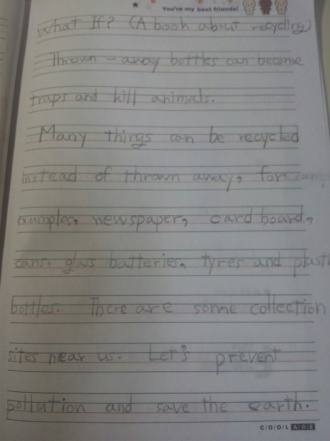 You're my best friends!
What If? (A book about recycling)
Thrown - away bottles can become
traps and kill animals.
Many things can be recycled
instead of thrown away, for
examples, newspaper, card board,
cans. glas batteries. tyres and plasti
bottles. There are some collection
sites near us. Let's prevent
pollation and save the earth.
COOL